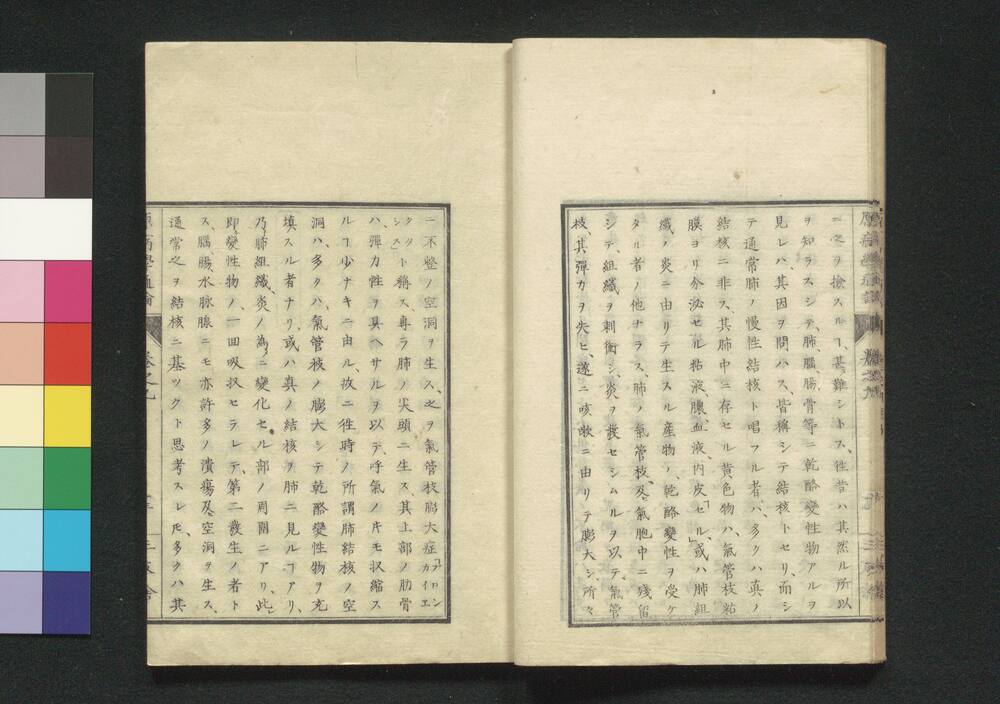 ニ之ヲ撿スルヿ、甚難シトス、徃昔ハ其然ル所以
ヲ知ラスシテ、肺、腦、腸、骨等ニ乾酪變性物アルヲ
見レハ、其因ヲ問ハス、皆稱シテ結核トセリ、而シ
テ通常肺ノ慢性結核ト唱フル者ハ、多クハ真ノ
結核ニ非ス、其肺中ニ存セル黄色物ハ、氣管枝粘
膜ヨリ分泌セル粘液、膿、血液、内皮「セル」、或ハ肺組
織ノ炎ニ由リテ生スル産物ノ、乾酪變性ヲ受ケ
タル者ノ他ナラス、肺ノ氣管枝、及氣胞中ニ殘留
シテ、組織ヲ刺衝シ、炎ヲ發セシムルヲ以テ、氣管
枝、其彈力ヲ失ヒ、遂ニ咳嗽ニ由リテ膨大シ、所々
ニ不整ノ空洞ヲ生ス、之ヲ氣管枝膨大症「ブロンシカイエクタシス」
ト稱ス、專ラ肺ノ尖頭ニ生ス、其上部ノ肋骨
ハ、彈力性ヲ具ヘサルヲ以テ、呼氣ノ片モ收縮ス
ルヿ少ナキニ由ル、故ニ徃時ノ所謂肺結核ノ空
洞ハ、多クハ、氣管枝ノ膨大シテ乾酪變性物ヲ充
填スル者ナリ、或ハ真ノ結核ヲ肺ニ見ルヿアリ、
乃肺組織、炎ノ為ニ變化セル部ノ周圍ニアリ、此
即變性物ノ、一回吸收セラレテ、第二發生ノ者ト
ス、腦、腸、水脉腺ニモ亦許多ノ潰瘍及空洞ヲ生ス、
通常之ヲ結核ニ基ツクト思考スレ𪜈、多クハ其
原病學通論